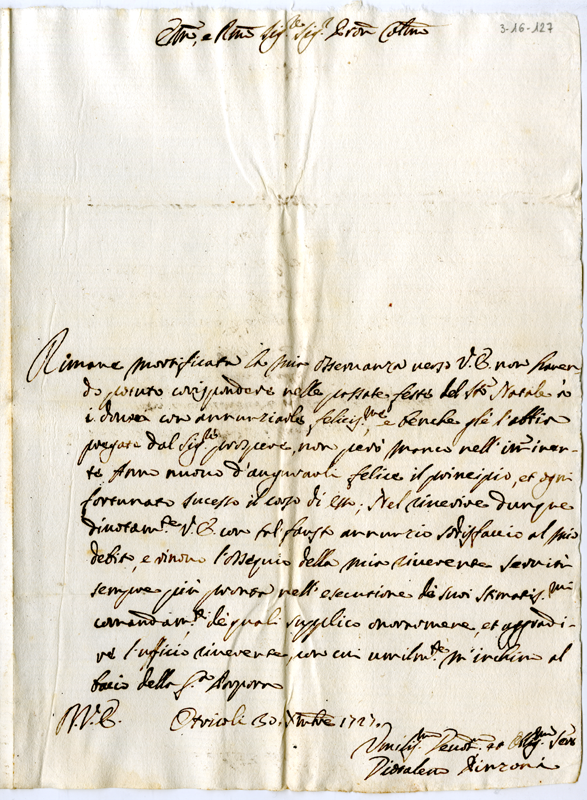 3-16-127
Em̃o, e Rm̃o Sig.re Sig.r Pron Col̃mo
Rimane mortificata la mia osservanza verso V.E. non haven-
do potuto corrispondere nelle passate feste del S.to Natale à
i doveri con annunziarle felicis.me e benche glé l'abbia
pregate dal Sig.re prospere, non però manco nell' im̃inen-
te Anno nuovo d'augurarli felice il principio, et ogni
fortunato sucesso il corso di esso; Nel riverire dunque
divotam.te V.E. con tal fausto annunzio sodisfaccio al mio
debito, e rinovo l'ossequio della mia riverente servitù
sempre più pronta nell'esecutione de suoi stimatis.mi
comandam.ti de quali supplico onorarmene, et aggradi-
re l'ufficio riverente, con cui umilm.te m'inchino al
bacio della S.a Porpora
D.V.E. Otricoli 30. Xmbre 1727.
Umilis.mo Devot. et Obl.mo Serv.
Pinzoni